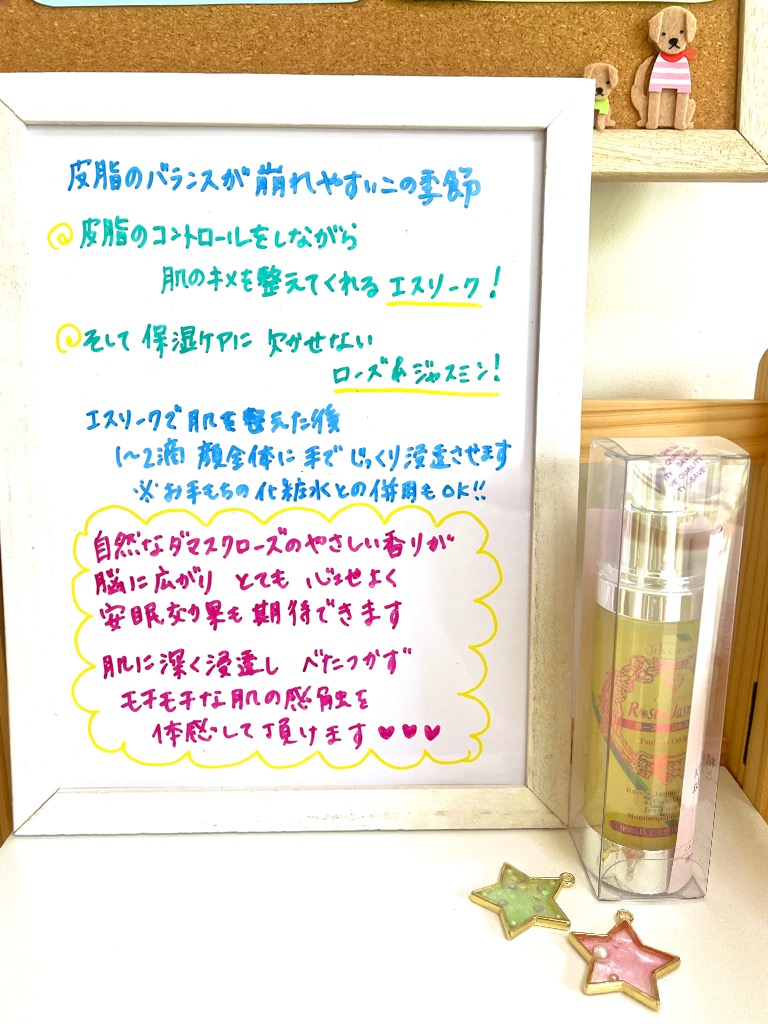 皮脂のバランスが崩れやすいこの季節
皮脂のコントロールをしながら
肌のキメを整えてくれる エスリーク!
そして 保湿ケアに 欠かせない
ローズ&ジャスミン!
エスリークで肌を整えた後
1〜2滴 顔全体に手でじっくり浸透させます
※お手もちの化粧水との併用もOK!!
自然なダマスクローズのやさしい香りが
脳に広がり とても 心地よく
安眠効果も期待できます
肌に深く浸透し べたつかず
モチモチな肌の感触を
体感して頂けます♥♥♥